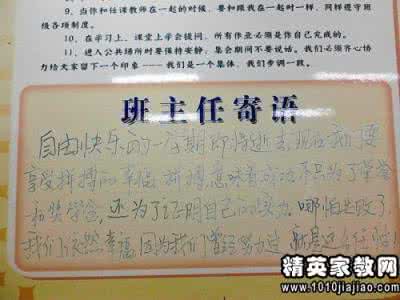 9、当你和任课教师在一起的时候，要和跟我在一起时一样，同样遵守班级各项制度。
10、在学习上，课堂上学会提问，所有作业必须是你自己完成的。
11、进入公共场所时要保持安静；集会期间不要说话。我们必须齐心协力给大家留下一个印象——我们是一个集体，我们步调一致。
班主任寄语
自由快乐的一星期即将逝去 现在我们要
享受拼搏的幸福 拼搏意味着成功 不只为了荣誉
和奖学金，还为了证明自己的实力。哪怕失败了，
我们依然幸福，因为我们曾经努力过
精英家教网
www.1010jiajiao.com